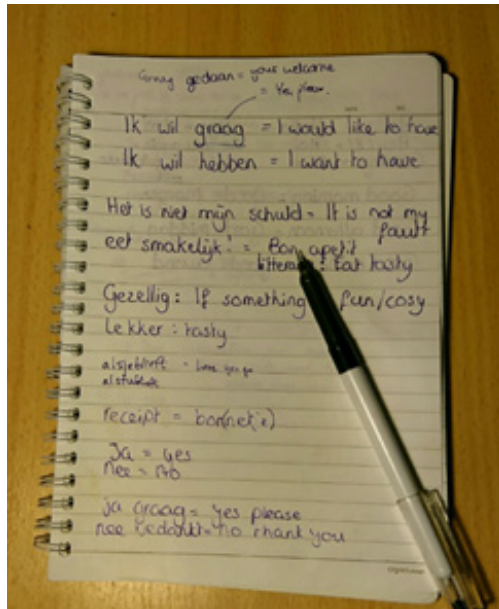 Graag gedaan = your welcome
= Yes, please.
Ik wil graag = I would like to have
Ik wil hebben = I want to have
Het is niet mijn schuld = It is not my
fault
eet smakelijk! = Bon apetit
litteraly: Eat tasty
Gezellig: If something fun/cosy
Lekker: tasty
alsjeblieft - here you go
alstublieft
receipt = bon(netje)
Ja = yes
nee = no
ja graag = yes please
nee bedankt = no thank you